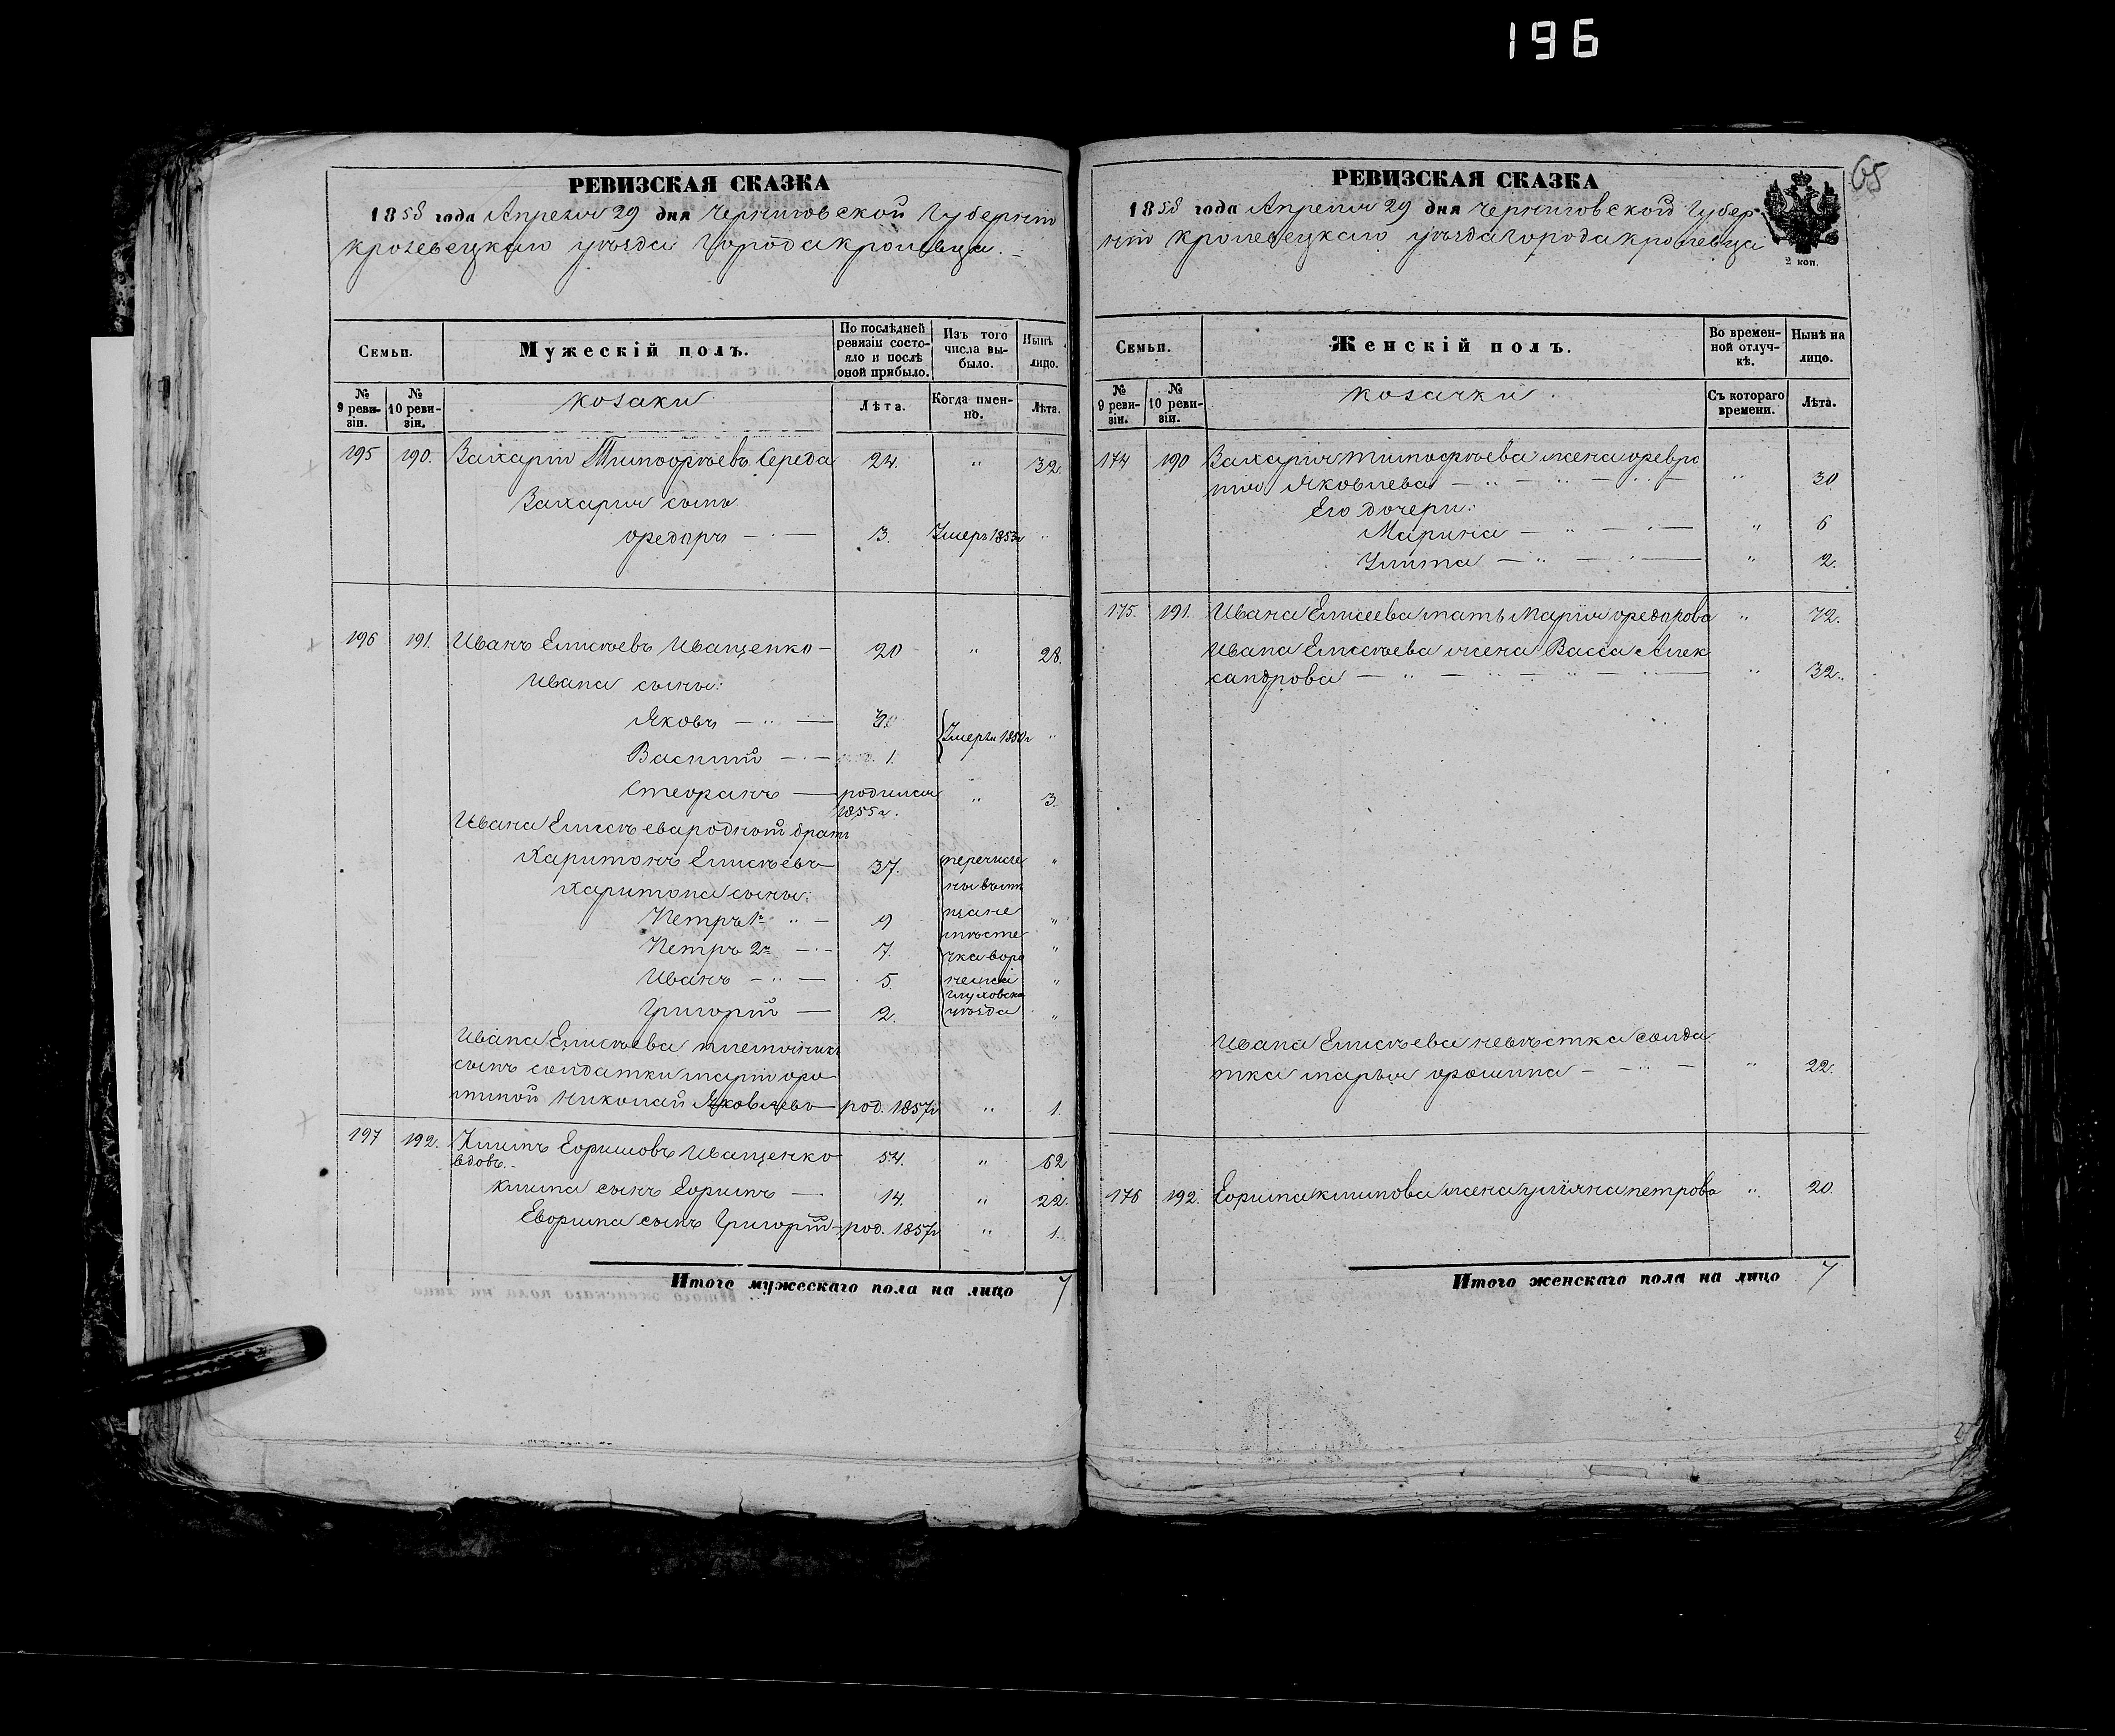 196
65
РЕВИЗСКАЯ СКАЗКА
1858 года Апреля 29 дня Черниговской Губерніи
Кролевецкаго уѣзда города Кролевца.
Семьи.
Мужескій полъ.
По послѣдней ревизіи состояло и послѣ оной прибыло.
Изъ того числа выбыло.
Нынѣ на лицо.
№ 9 ревизіи.
№ 10 ревизіи.
Козаки
Лѣта.
Когда именно.
Лѣта.
195 190. Захарій Тимофѣевъ Середа 24. " 32.
Захарія сынъ
Федоръ 3. Умеръ 1853г "
196 191. Иванъ Елисѣевъ Иващенко 20 " 28.
Ивана сыны:
Яковъ
Василій 1. Умерли 1850г "
Стефанъ родился 1855г. " 3.
Ивана Елисѣева родной братъ
Харитонъ Елисѣевъ 37. "
Харитона сыны:
Петръ 1й 9 "
Петръ 2й 7. "
Иванъ 5. "
Григорій 2. "
перечисле
ны въ мѣ
щане
мѣсте
чка Воро
нежа
Глуховска
уѣзда
Ивана Елисѣева племянникъ
сынъ солдатки Маріи Фо
миной Николай Яковлевъ род. 1857г " 1.
197 192. Климъ Ефимовъ Иващенко 54. " 62
вдовъ.
Клима сынъ Ефимъ 14. " 22.
Евфима сынъ Григорій род. 1857г " 1.
Итого мужескаго пола на лицо 7
РЕВИЗСКАЯ СКАЗКА
1858 года Апреля 29 дня Черниговской Губер
ніи Кролевецкаго уѣзда города Кролевца
2 коп.
Семьи.
Женскій полъ.
Во временной отлучкѣ.
Нынѣ на лицо.
№ 9 ревизіи.
№ 10 ревизіи.
Козачки
Съ котораго времени.
Лѣта.
174 190 Захарія Тимофѣева жена Февро
нія Яковлева " 30
Его дочери:
Марина " 6
Улита " 2.
175. 191. Ивана Елисеева мать Марія Федорова " 72.
Ивана Елисѣева жена Васса Алек
сандрова " 32.
Ивана Елисѣева невѣстка солда
тка Марья Фомина " 22.
176 192. Ефима Климова жена Уліяна Петрова " 20.
Итого женскаго пола на лицо 7